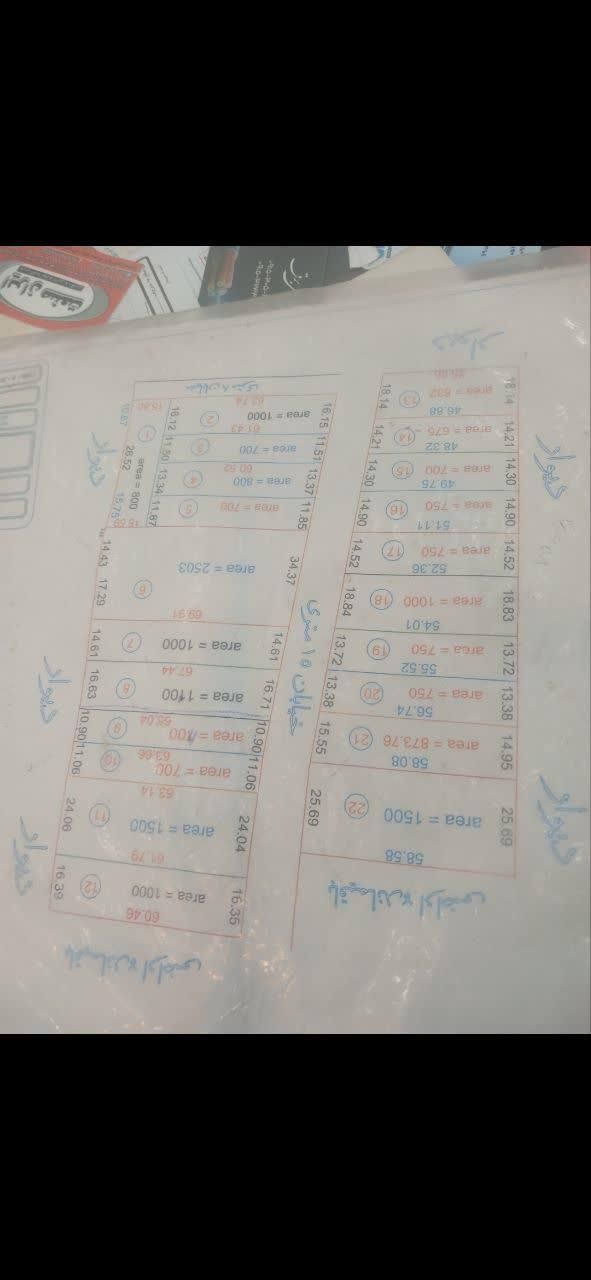 ایران صنعتی
دیوار
دیوار
دیوار
دیوار
دیوار
دیوار
دیوار
خیابان ۸ متری
خیابان ۱۵ متری
باقیمانده اراضی
باقیمانده اراضی
1
area = 800
15.80
26.52
15.75
15.59
2
area = 1000
62.74
16.12
16.15
61.43
3
area = 700
11.50
11.51
4
area = 800
60.52
13.34
13.37
5
area = 700
11.87
11.85
6
area = 2503
14.43
17.29
34.37
69.91
7
area = 1000
14.61
14.61
67.44
8
area = 1100
16.63
16.71
9
area = 700
10.90
10.90
10
area = 700
11.06
11.06
63.14
11
area = 1500
24.06
24.04
61.79
12
area = 1000
16.39
16.35
60.46
13
area = 832
18.14
18.14
46.88
14
area = 675
14.21
14.21
48.32
15
area = 700
14.30
14.30
49.75
16
area = 750
14.90
14.90
51.11
17
area = 750
14.52
14.52
52.36
18
area = 1000
18.84
18.83
54.01
19
area = 750
13.72
13.72
55.52
20
area = 750
13.38
13.38
56.74
21
area = 873.76
15.55
14.95
58.08
22
area = 1500
25.69
25.69
58.58